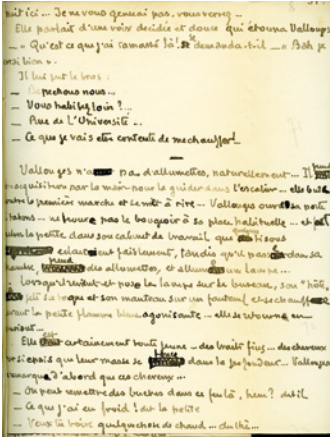 nuit ici ... Je ne vous gênerai pas, vous verrez ...
Elle parlait d'une voix décidée et douce qui étonna Vallouges
— Qu'est ce que j'ai ramassé là! se demanda-t-il — Bah je
suis bien ..
Il lui prit le bras:
— Dépêchons nous ...
— Vous habitez loin? ...
— Rue de L'Université ...
— Ce que je vais être contente de me chauffer! ..
Vallouges n'a pas d'allumettes, naturellement ... Il prend
par la main pour la guider dans l'escalier ... elle bute
contre la première marche et se met à rire ... Vallouges ouvre sa porte
à tâtons ... ne trouve pas le bougeoir à sa place habituelle ... et
la petite dans son cabinet de travail que quelques tisons
éclairent faiblement, tandis qu'il passe dans sa
chambre, prend des allumettes, et allume une lampe ...
Lorsqu'il revient et pose la lampe sur le bureau, son "hôte"
a jeté sa toque et son manteau sur un fauteuil et se chauffe
devant la petite flamme bleue agonisante ... elle se retourne en
souriant ...
Elle est certainement toute jeune ... des traits fins ... des cheveux
si épais que leur masse se dans le jour ... Vallouges
remarque d'abord que ces cheveux ...
— On peut remettre des buches dans ce feu là, hein? dit-il
— Ce que j'ai eu froid! dit la petite
— Veux tu boire quelque chose de chaud ... du thé ...